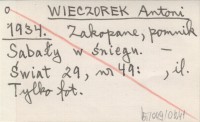 o WIECZOREK Antoni
1934. Zakopane, pomnik
Sabały w śniegu. –
Świat 29, nr 49: , il.
Tylko fot.